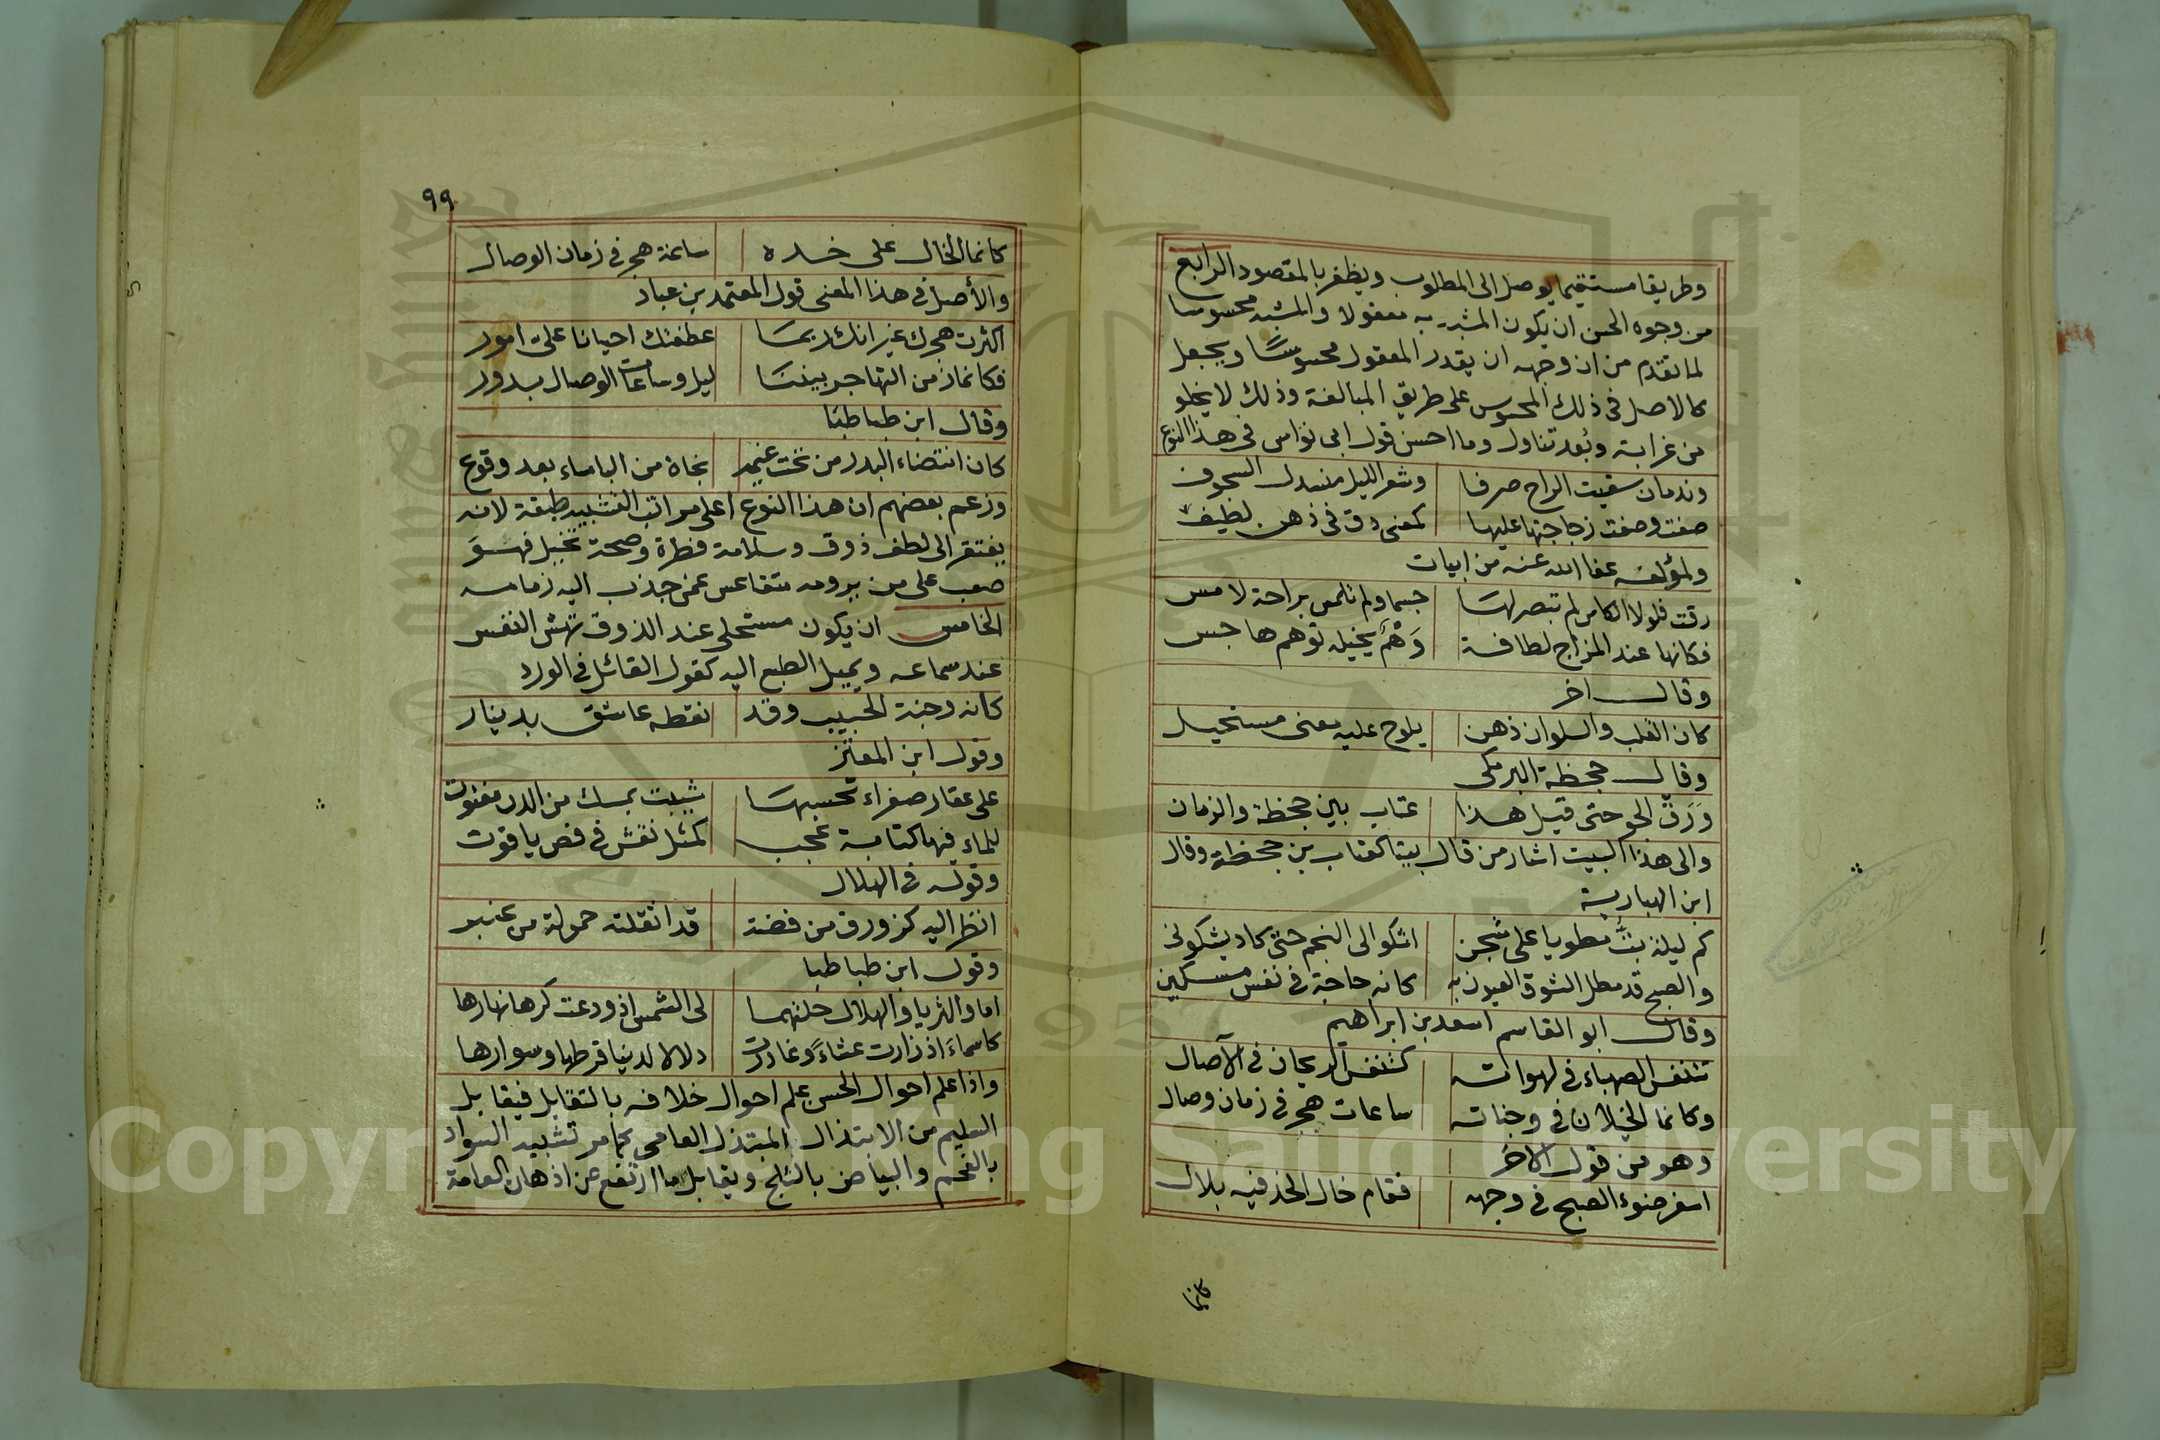 وطريقا مستقيما يوصل الى المطلوب ويظفر بالمقصود الرابع
من وجوه الحسن ان يكون المشبه به معقولا والمشبه محسوسا
لما تقدم من ان وجهه ان يقدر المعقول محسوسًا ويجعل
كالاصل فى ذلك المحسوس على طريق المبالغة وذلك لا يخلو
من غرابة وبُعد تناول وما احسن قول ابى نواس فى هذا النوع
وندمان سقيت الراح صرفا وشعر الليل منسدل السجوف
صفت وصفت زجاجتها عليها كمعنى دق فى ذهن لطيف
ولمؤلفه عفا الله عنه من ابيات
رقت فلولا الكاس لم تبصر لها جسما ولم تلمس براحة لامس
فكانها عند المزاج لطافة وَهْمٌ يخيله توهم هاجس
وقال اخر
كان القلب والسلوان ذهن يلوح عليه معنى مستحيل
وقال جحظة البرمكى
وَرَقّ الجو حتى قيل هذا عتاب بين جحظة والزمان
والى هذا البيت اشار من قال بيتا كعتاب بين جحظة وقال
ابن الهبارية
كم ليلة بتُّ مطويا على شجن اشكو الى النجم حتى كاد يشكونى
والصبح قد مطل الشوق العيون به كانه حاجة فى نفس مسكين
وقال ابو القاسم اسعد بن ابراهيم
تتنفس الصهباء فى لهواته كتنفس الريحان فى الآصال
وكانما الخيلان فى وجناته ساعات هجر فى زمان وصال
وهو من قول الاخر
اسفر ضوء الصبح فى وجهه فقام خال الخد فيه بلال
كانما
٩٩
كانما الخال على خده ساعة هجر فى زمان الوصال
والأصل فى هذا المعنى قول المعتمد بن عباد
اكثرت هجرك غير انك ربما عطفتك احيانا على امور
فكانما زمن التهاجر بيننا ليل وساعات الوصال بدور
وقال ابن طباطبا
كان انتضاء البدر من تحت غيمه نجاة من الباساء بعد وقوع
وزعم بعضهم ان هذا النوع اعلى مراتب التشبيه طبقة لانه
يفتقر الى لطف ذوق وسلامة فطرة وصحة تخيل فهو
صعب على من يرومه متقاعس عمن جذب اليه زمامه
الخامس ان يكون مستحلى عند الذوق تهش النفس
عند سماعه ويميل الطبع اليه كقول القائل فى الورد
كانه وجنة الحبيب وقد نقطه عاشق بدينار
وقول ابن المعتز
على عقار صفراء تحسبها شيبت بمسك من الدن مفتوت
للماء فيها كتابة عجب كمثل نقش فى فص ياقوت
وقوله فى الهلال
انظر اليه كزورق من فضة قد اثقلته حمولة من عنبر
وقول ابن طباطبا
اما والثريا والهلال جلتهما لى الشمس اذ ودعت كرها نهارها
كاسماءَ اذ زارت عشاءً وغادرت دلالا لدينا قرطها وسوارها
واذا علم احوال الحسن علم احوال خلافه بالتقابل فيقابل
السليم من الابتذال المبتذل العامى كما مر تشبيه السواد
بالفحم والبياض بالثلج ويقابل ما ارتفع عن اذهان العامة
Copyright © King Saud University